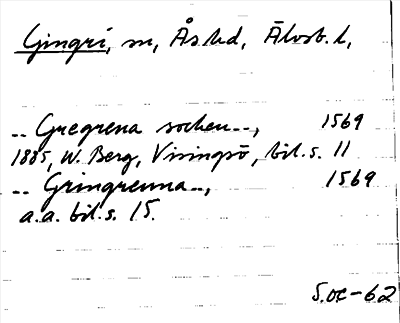 Gingri, sn, Ås hd, Älvsb. l,
.. Gregrena sochen..., 1569
1885, W. Berg, Visingsö, bil. s. 11
.. Gringrenna.., 1569
a.a. bil. s. 15.
S.oc-62